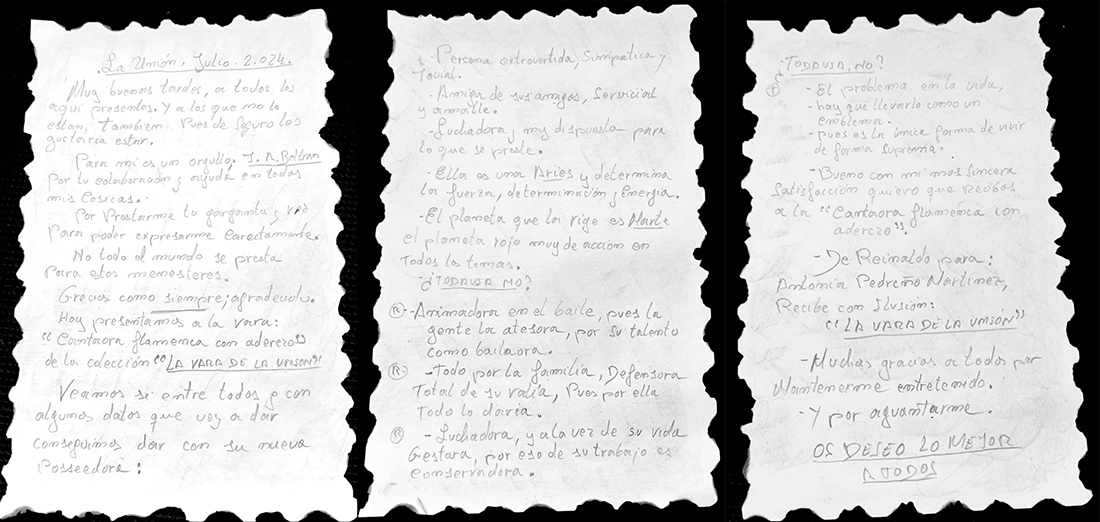 La Unión, Julio. 2.024.
Muy buenas tardes, a todos los
aquí presentes. Y a los que no lo
estan, también. Pues de seguro les
gustaria estar.
Para mi es un orgullo. J. A. Beltran
Por tu colaboración; ayuda en todas
mis Cosicas.
Por Prestarme tu garganta, y voz
Para poder expresarme Correctamente.
No todo el mundo se presta
Para estos menesteres.
Gracias como siempre; agradecido.
Hoy presentamos a la vara:
"Cantaora flamenca con aderezo"
de la colección "LA VARA DE LA UNIÓN"
Veamos si entre todos y con
algunos datos que voy a dar
conseguimos dar con su nueva
Posseedora:
- Persona extrovertida, Simpatica y
Social.
- Amiga de sus amigos, Servicial
y amable.
- Luchadora, muy dispuesta para
lo que se preste.
- Ella es una Aries y determina
la fuerza, determinación; Energia.
- El planeta que la rige es Marte
el planeta rojo muy de acción en
Todos los temas.
- ¿TODAVIA NO?
(R) - Animadora en el baile, pues la
gente la atesora, por su talento
como bailaora.
(R) - Todo por la familia, Defensora
Total de su valia, Pues por ella
Todo lo daria.
(R) - Luchadora, y a la vez de su vida
Gestora, por eso de su trabajo es
conservadora.
¿TODAVIA, NO?
- El problema en la vida,
- hay que llevarlo como un
emblema.
- pues es la única forma de vivir
de forma suprema.
- Bueno con mi mas sincera
Satisfacción quiero que recibas
a la "Cantaora flamenca con
aderezo".
- De Reinaldo para:
Antonia Pedreño Martinez,
Recibe con Ilusión:
"LA VARA DE LA UNIÓN"
- Muchas gracias a todos por
Mantenerme entretenido.
- Y por aguantarme.
OS DESEO LO MEJOR
A TODOS